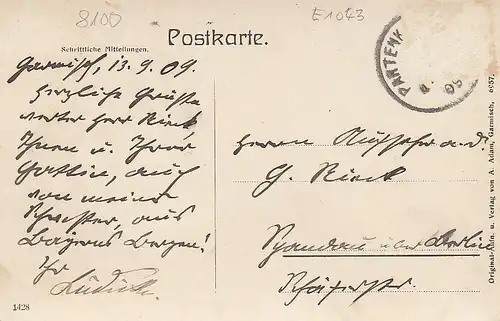 8100
E1043
Postkarte.
Schriftliche Mitteilungen.
PARTENK
09
Garmisch, 13.9.09.
Herzliche Grüße
werter Herr Rieck
Ihnen u. Ihrer
Gattin, auch
von meiner
Schwester, aus
Bayerns Bergen!
Ihr
Herrn
G. Rieck
Spandau über Berlin
Original-Aufn. u. Verlag von A. Adam, Garmisch, 6957.
1428